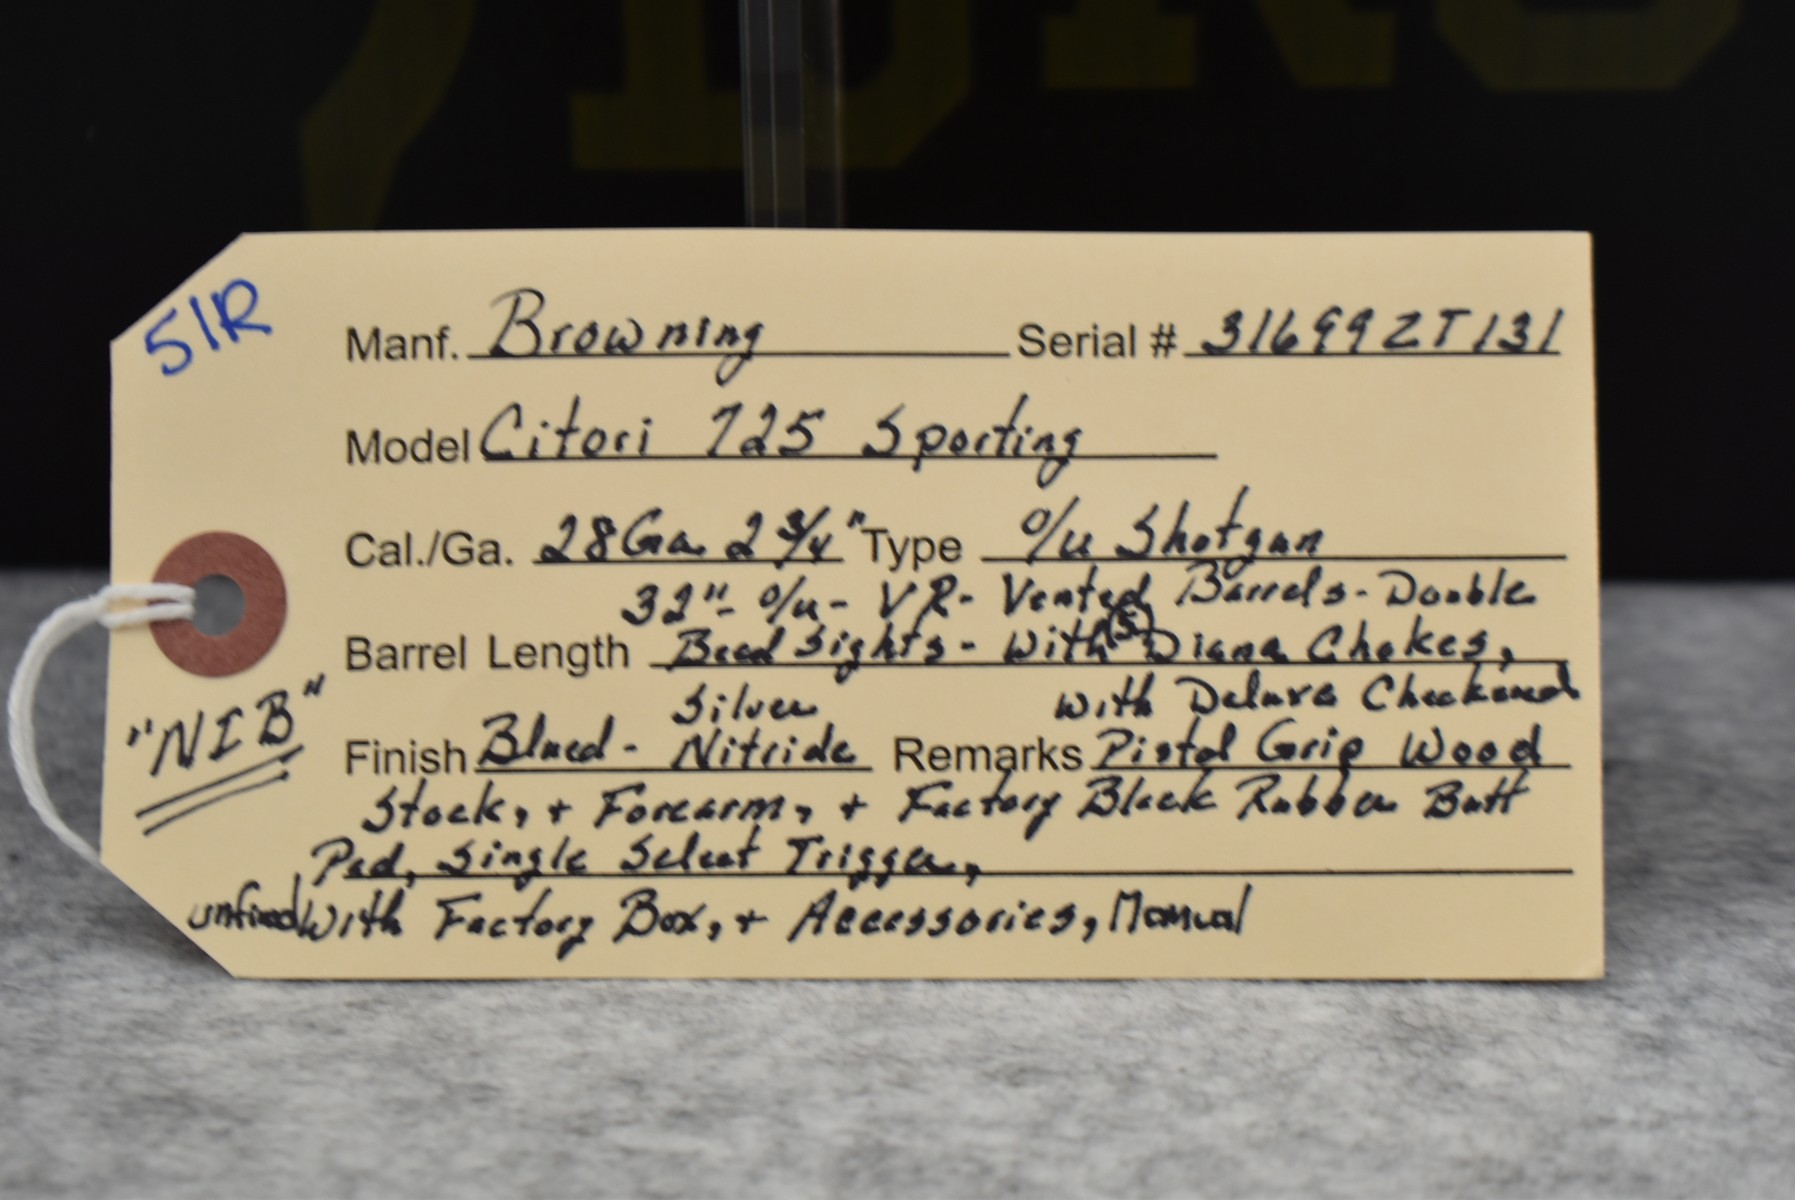 51R
Manf. Browning Serial # 31699ZT131
Model Citori 725 Sporting
Cal./Ga. 28Ga. 2 3/4" Type O/U Shotgun
32"- O/U- VR- Vented Barrels- Double
Barrel Length Bead Sights- With (5) Diana Chokes,
Silver with Deluxe Checkered
"NIB" Finish Blued- Nitride Remarks Pistol Grip Wood
Stock, + Forearm, + Factory Black Rubber Butt
Pad, Single Select Trigger,
unfired, With Factory Box, + Accessories, Manual